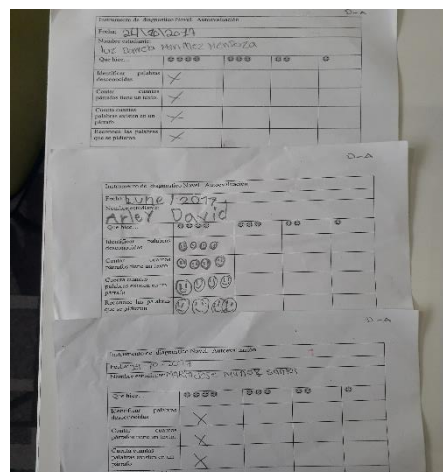 D-A
Instrumento de diagnóstico Novel. Autoevaluación
Fecha: 24/10/2017
Nombre estudiante:
Luz Daniela Méndez Mendoza
Que hice...
Identificar palabras desconocidas
Cuento cuantos párrafos tiene un texto.
Cuento cuantas palabras existen en un párrafo.
Reconoce las palabras que se pidieron.
D-A
Instrumento de diagnóstico Novel. Autoevaluación
Fecha: Lune / 2017
Nombre estudiante:
Arley David
Que hice...
Identificar palabras desconocidas
Cuento cuantos párrafos tiene un texto.
Cuento cuantas palabras existen en un párrafo.
Reconoce las palabras que se pidieron
D-A
Instrumento de diagnóstico Novel. Autoevaluación
Fecha: 10-2017
Nombre estudiante: Muñoz Santos
Que hice...
Identificar palabras desconocidas
Cuento cuantos párrafos tiene un texto.
Cuento cuantas palabras existen en un párrafo.